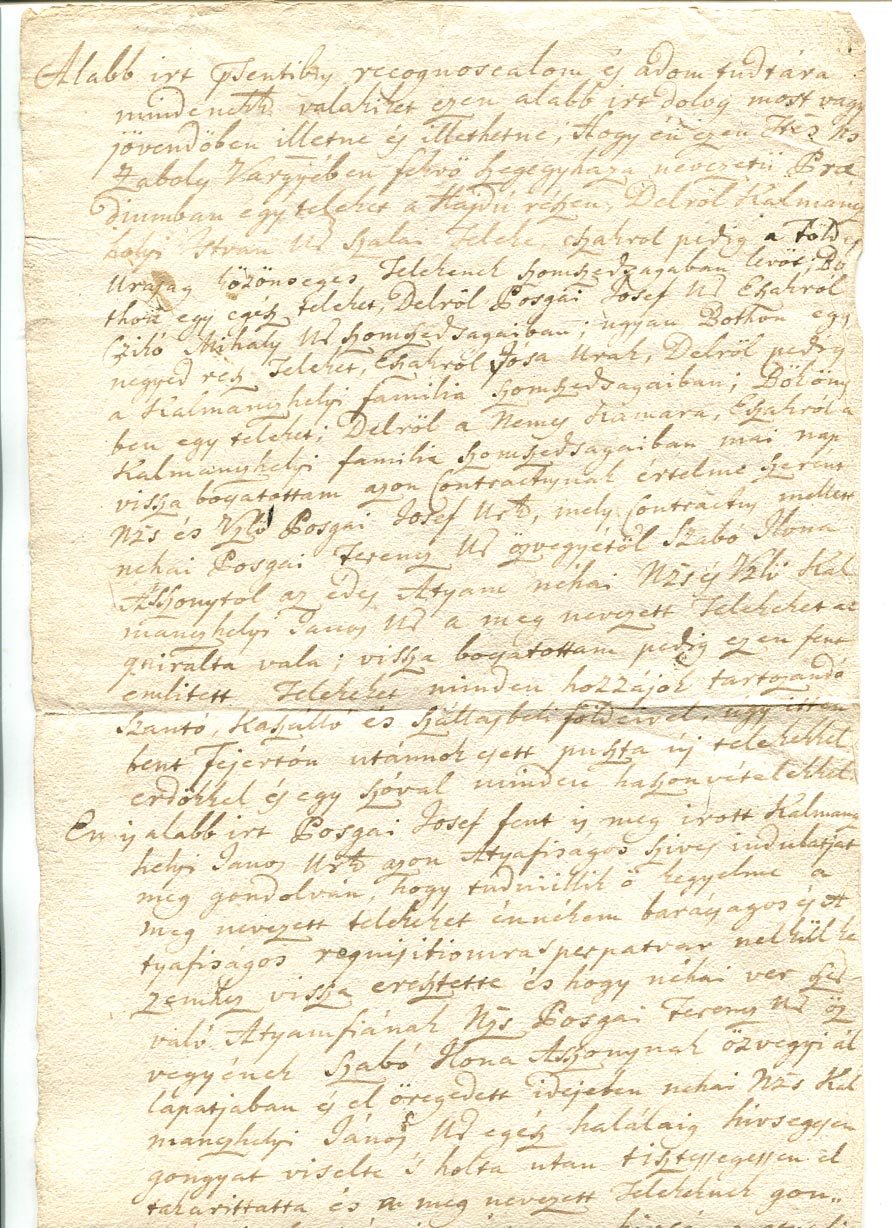 Alabb irt psentibg recognoscalom és adom tudtára
mindeneknek valakiket ezen alabb irt dolog most vagy
jövendöben illetne és illethetne; Hogy én ezen
Szaboly Vargyében fekvö hegegyháza nevezetü Præ
diumban egy teleket a Hajdu részen, Delröl Kalmancz
helyi Istvan Ur Szalai Teleke eszakrol pedig a Földes
Uraság közönseges Telekenek szomszedsagaban levöt, Bo
thon egy egész teleket, Delröl Posgai Josef Ur Eszakröl
Czikó Mihály Ur szomszedsagaiban; ugyan Bothon egy
negyed rész Teleket, Eszakröl Josa Urak, Delröl pedig
a Kalmanczhelyi familia szomszedsagaiban; Bököny
ben egy teleket; Delröl a Nemes Kamara, Eszakról a
Kalmánczhelyi familia szomszedsagaiban mai nap
vissza bocsatottam azon Contractusnak értelme szerént
Nzs és Vzlö Posgai Josef Urnk, mely Contractus mellett
nehai Posgai Ferencz Ur özvegyétöl Szabó Ilona
Aszszonytol az édes Atyam néhai Nzs és Vzlö Kal
manczhelyi Janos Ur a meg nevezett Telekeket ac
quiralta vala; vissza bocsátottam pedig ezen fent
emlitett Telekeket minden hozzájok tartozandó
szantó, kaszálló és szállasbeli földeivel, ugy itten
bent Fejertón utánnok esett puszta új telekekkel
erdökkel és egy szóval minden haszonvételekkel
En is alabb irt Posgai Josef fent is meg irott Kalmancz
helyi Janos Urnk azon Atyafiságos szives indulatját
meg gondolván, hogy tudniillik ö kegyelme a
meg nevezett telekeket énnékem barátságos és A
tyafiságos requisitiomra perpatvar nelkül ke
zemhez vissza eresztette és hogy néhai ver szer
való Atyamfiának Nzs Posgai Ferencz Ur öz
vegyének Szabó Ilona Aszszonynak özvegyi ál
lapatjában és el öregedett idejeben nehai Nzs Kal
manczhelyi János Ur egész haláláig hivsegesen
gongyat viselte 's holta utan tisztessegessen el
takarittatta és a meg nevezett Telekeknek gon..